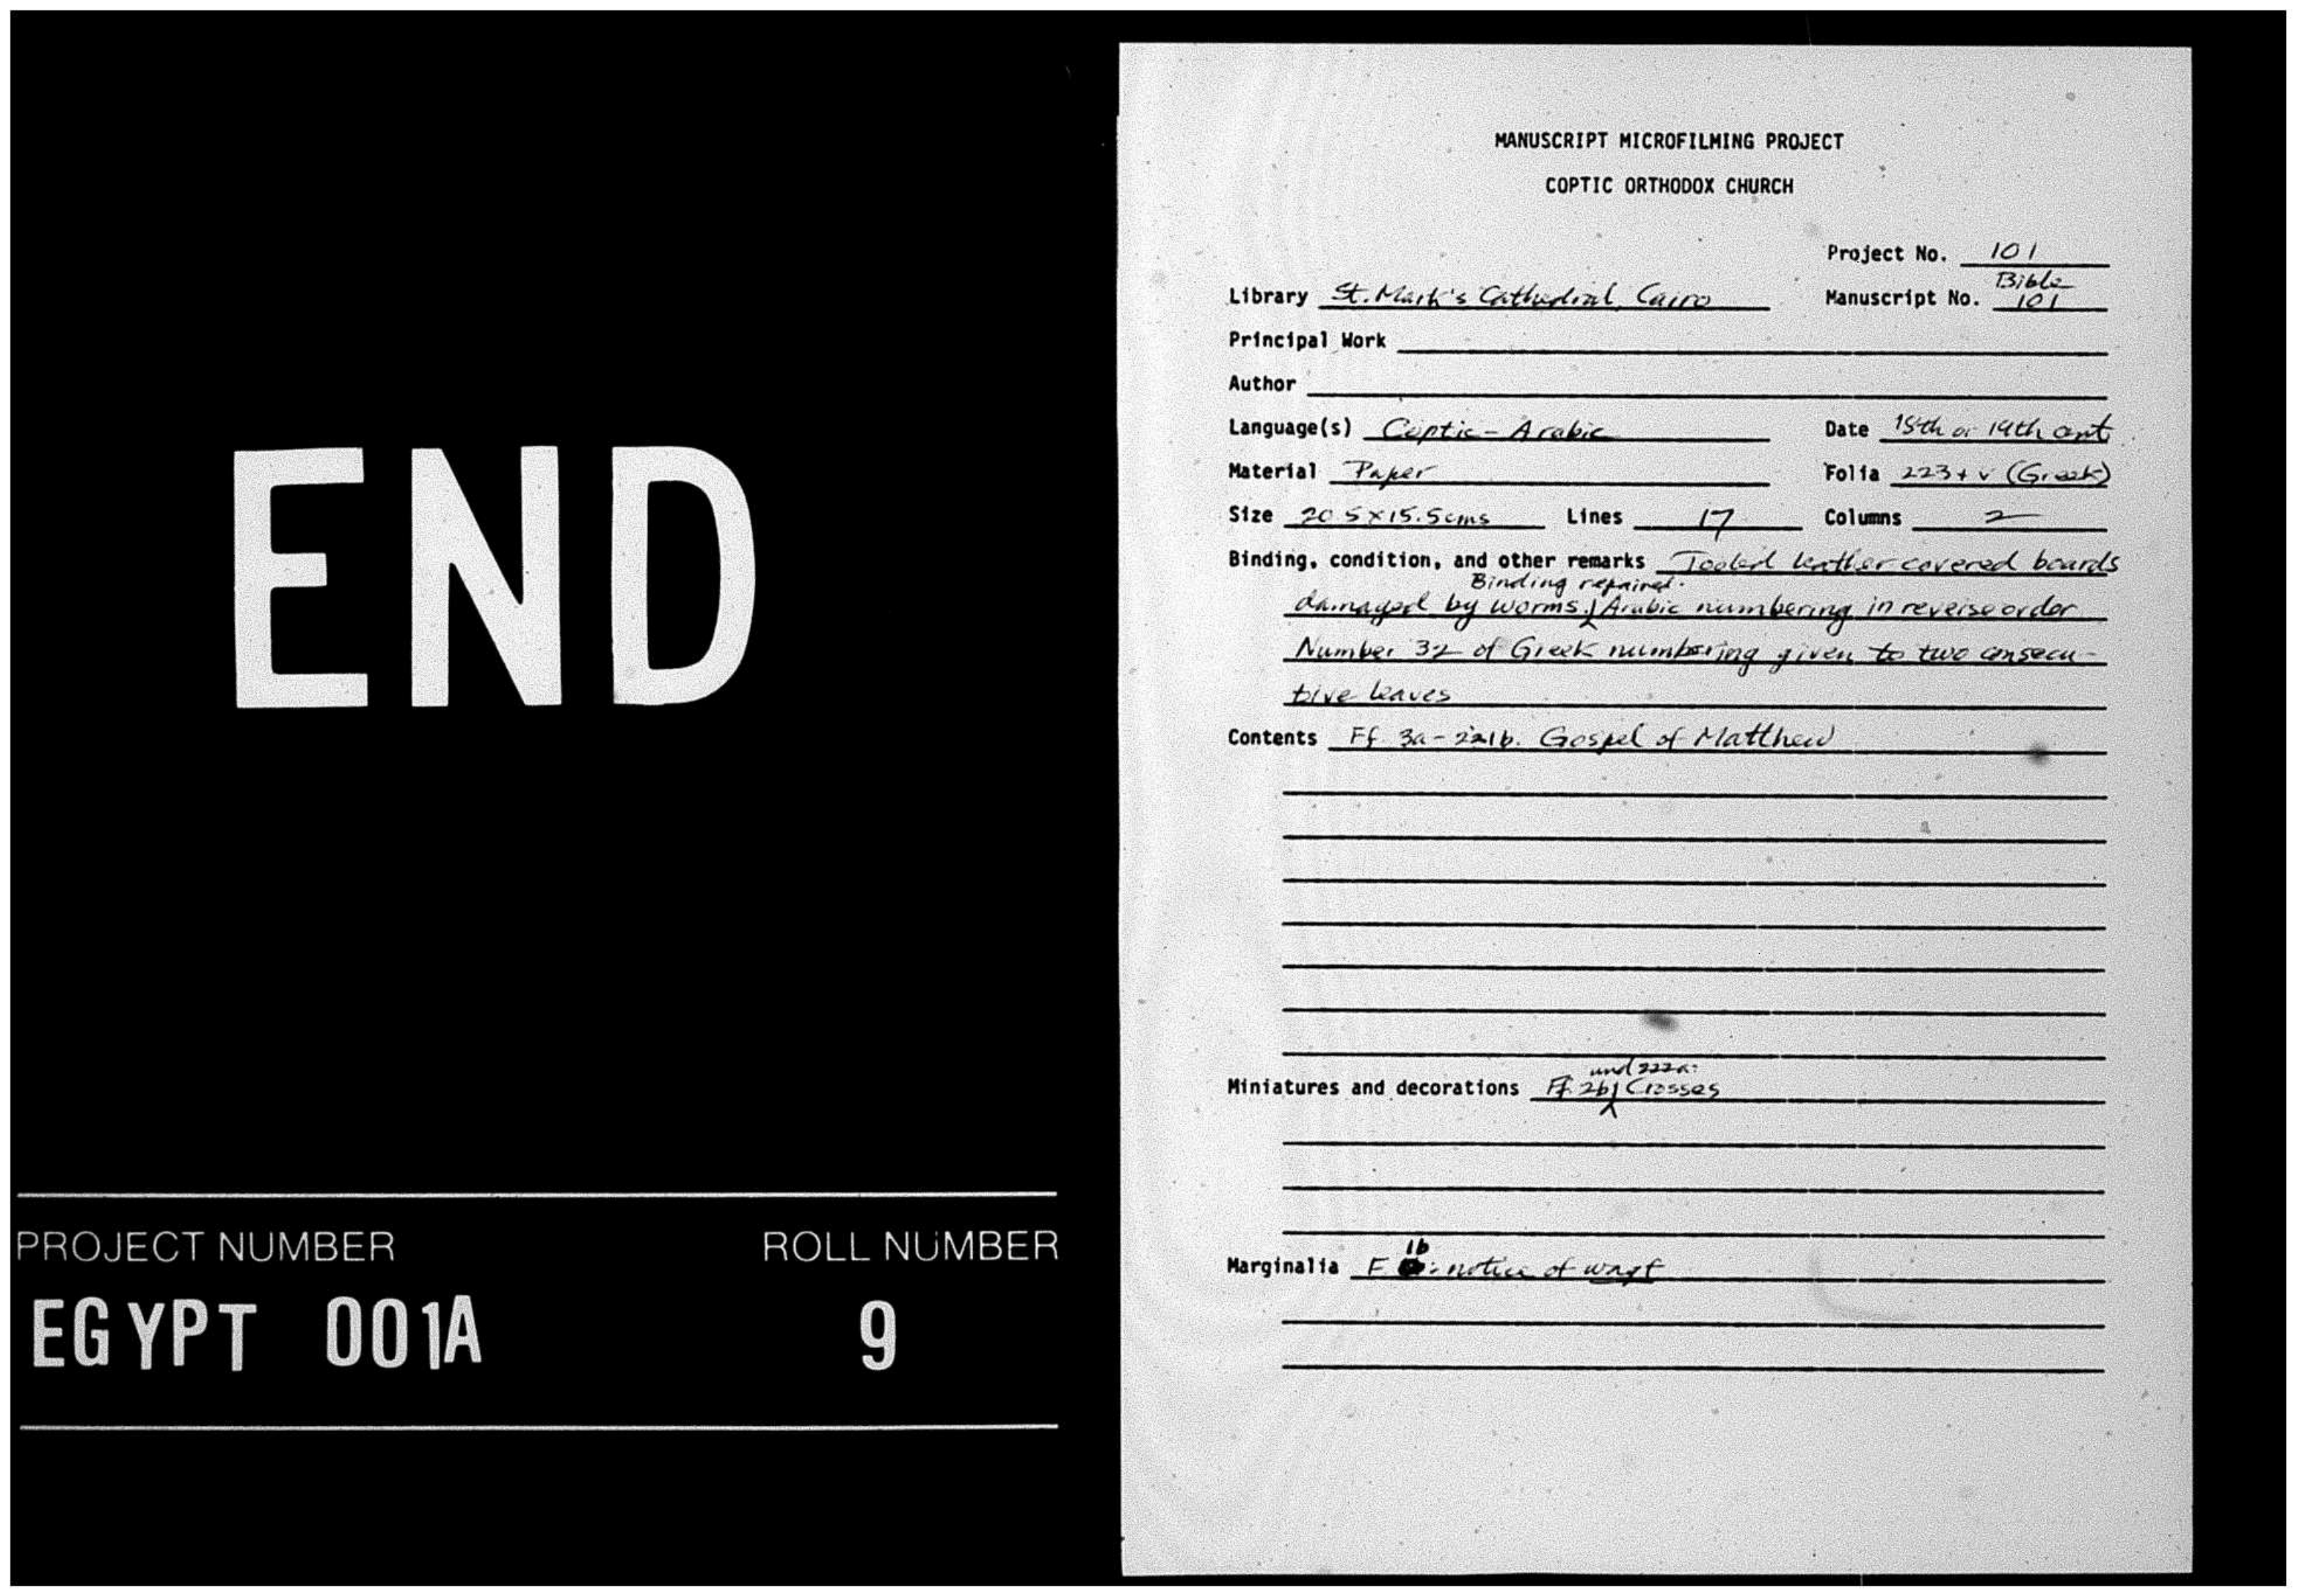 END
PROJECT NUMBER ROLL NUMBER
EGYPT 001A 9
MANUSCRIPT MICROFILMING PROJECT
COPTIC ORTHODOX CHURCH
Project No. 101
Library St. Mark's Cathedral, Cairo Manuscript No. Bible 101
Principal Work
Author
Language(s) Coptic-Arabic Date or 19th cent.
Material Paper Folia 223 + v (Greek)
Size 20.5 x 15.5 cms Lines 17 Columns 2
Binding, condition, and other remarks Tooled leather covered boards
damaged by worms. Binding repaired. Arabic numbering in reverse order
Number 32 of Greek numbering given to two consecu-
tive leaves
Contents Ff. 3a-221b. Gospel of Matthew
Miniatures and decorations Ff. 2b and 222a: Crosses
Marginalia F. 1b: notice of waqf